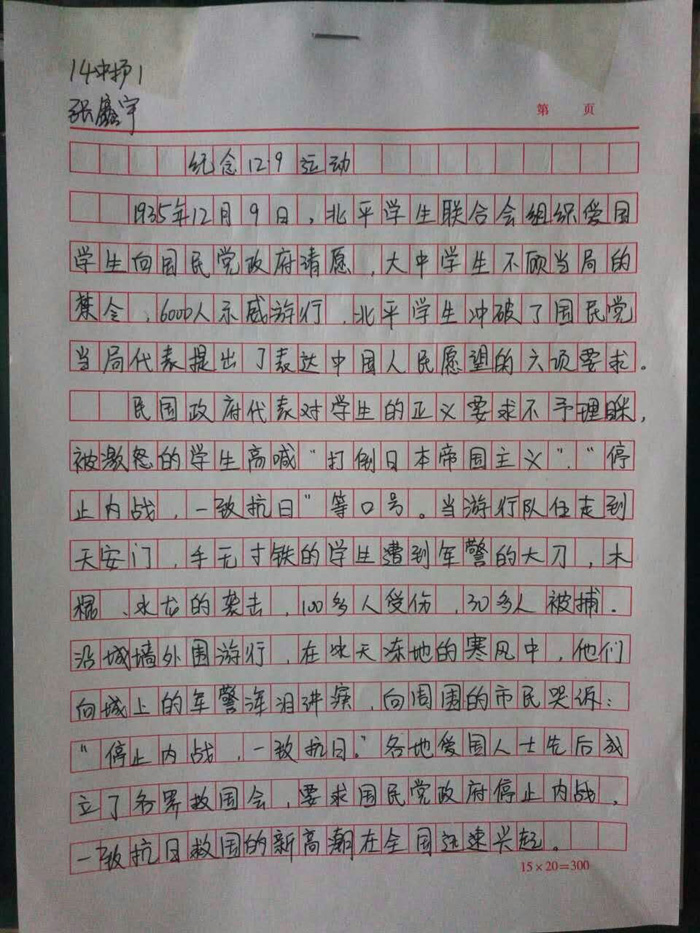 14冲扔1
张鑫宇
第 页
纪念129运动
1935年12月9日,北平学生联合会组织爱国
学生向国民党政府请愿,大中学生不顾当局的
禁令,6000人示威游行,北平学生冲破了国民党
当局代表提出了表达中国人民愿望的六项要求。
民国政府代表对学生的正义要求不予理睬,
被激怒的学生高喊“打倒日本帝国主义”、“停
止内战,一致抗日”等口号。当游行队伍走到
天安门,手无寸铁的学生遭到军警的大刀,木
棍、水龙的袭击,100多人受伤,30多人被捕.
沿城墙外围游行,在冰天冻地的寒风中,他们
向城上的军警浑泪讲演,向周围的市民哭诉:
“停止内战,一致抗日。”各地爱国人士先后成
立了各界救国会,要求国民党政府停止内战,
一致抗日救国的新高潮在全国迅速兴起。
15×20=300